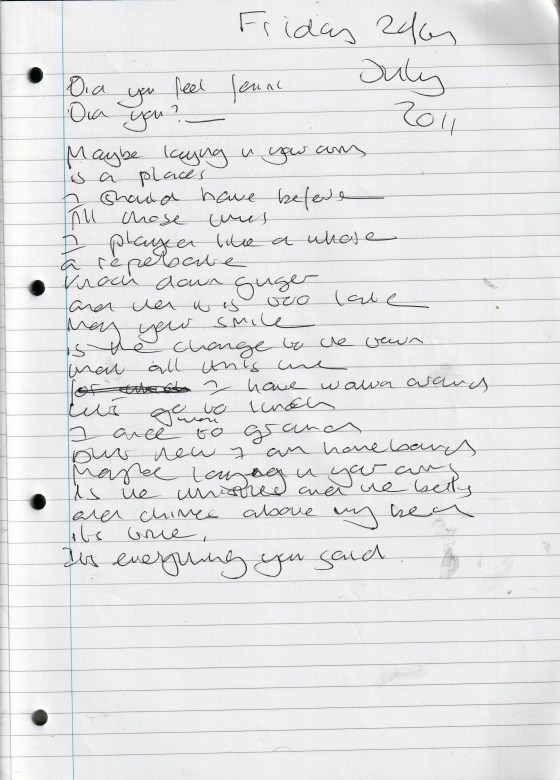 Friday
July
2011
Did you feel
Did you?
Maybe laying in your arms
is a places
I should have before
All those times
I played like a whose
a
Knock down ginger
and then it is too late
May your smile
is the change to the
that all this time
I have walked around
let's go to lunch
I to ground
but now I am homebound
Maybe laying in your arms
Is the whistles and the bells
and chimes above my head
its time,
Its everything you said